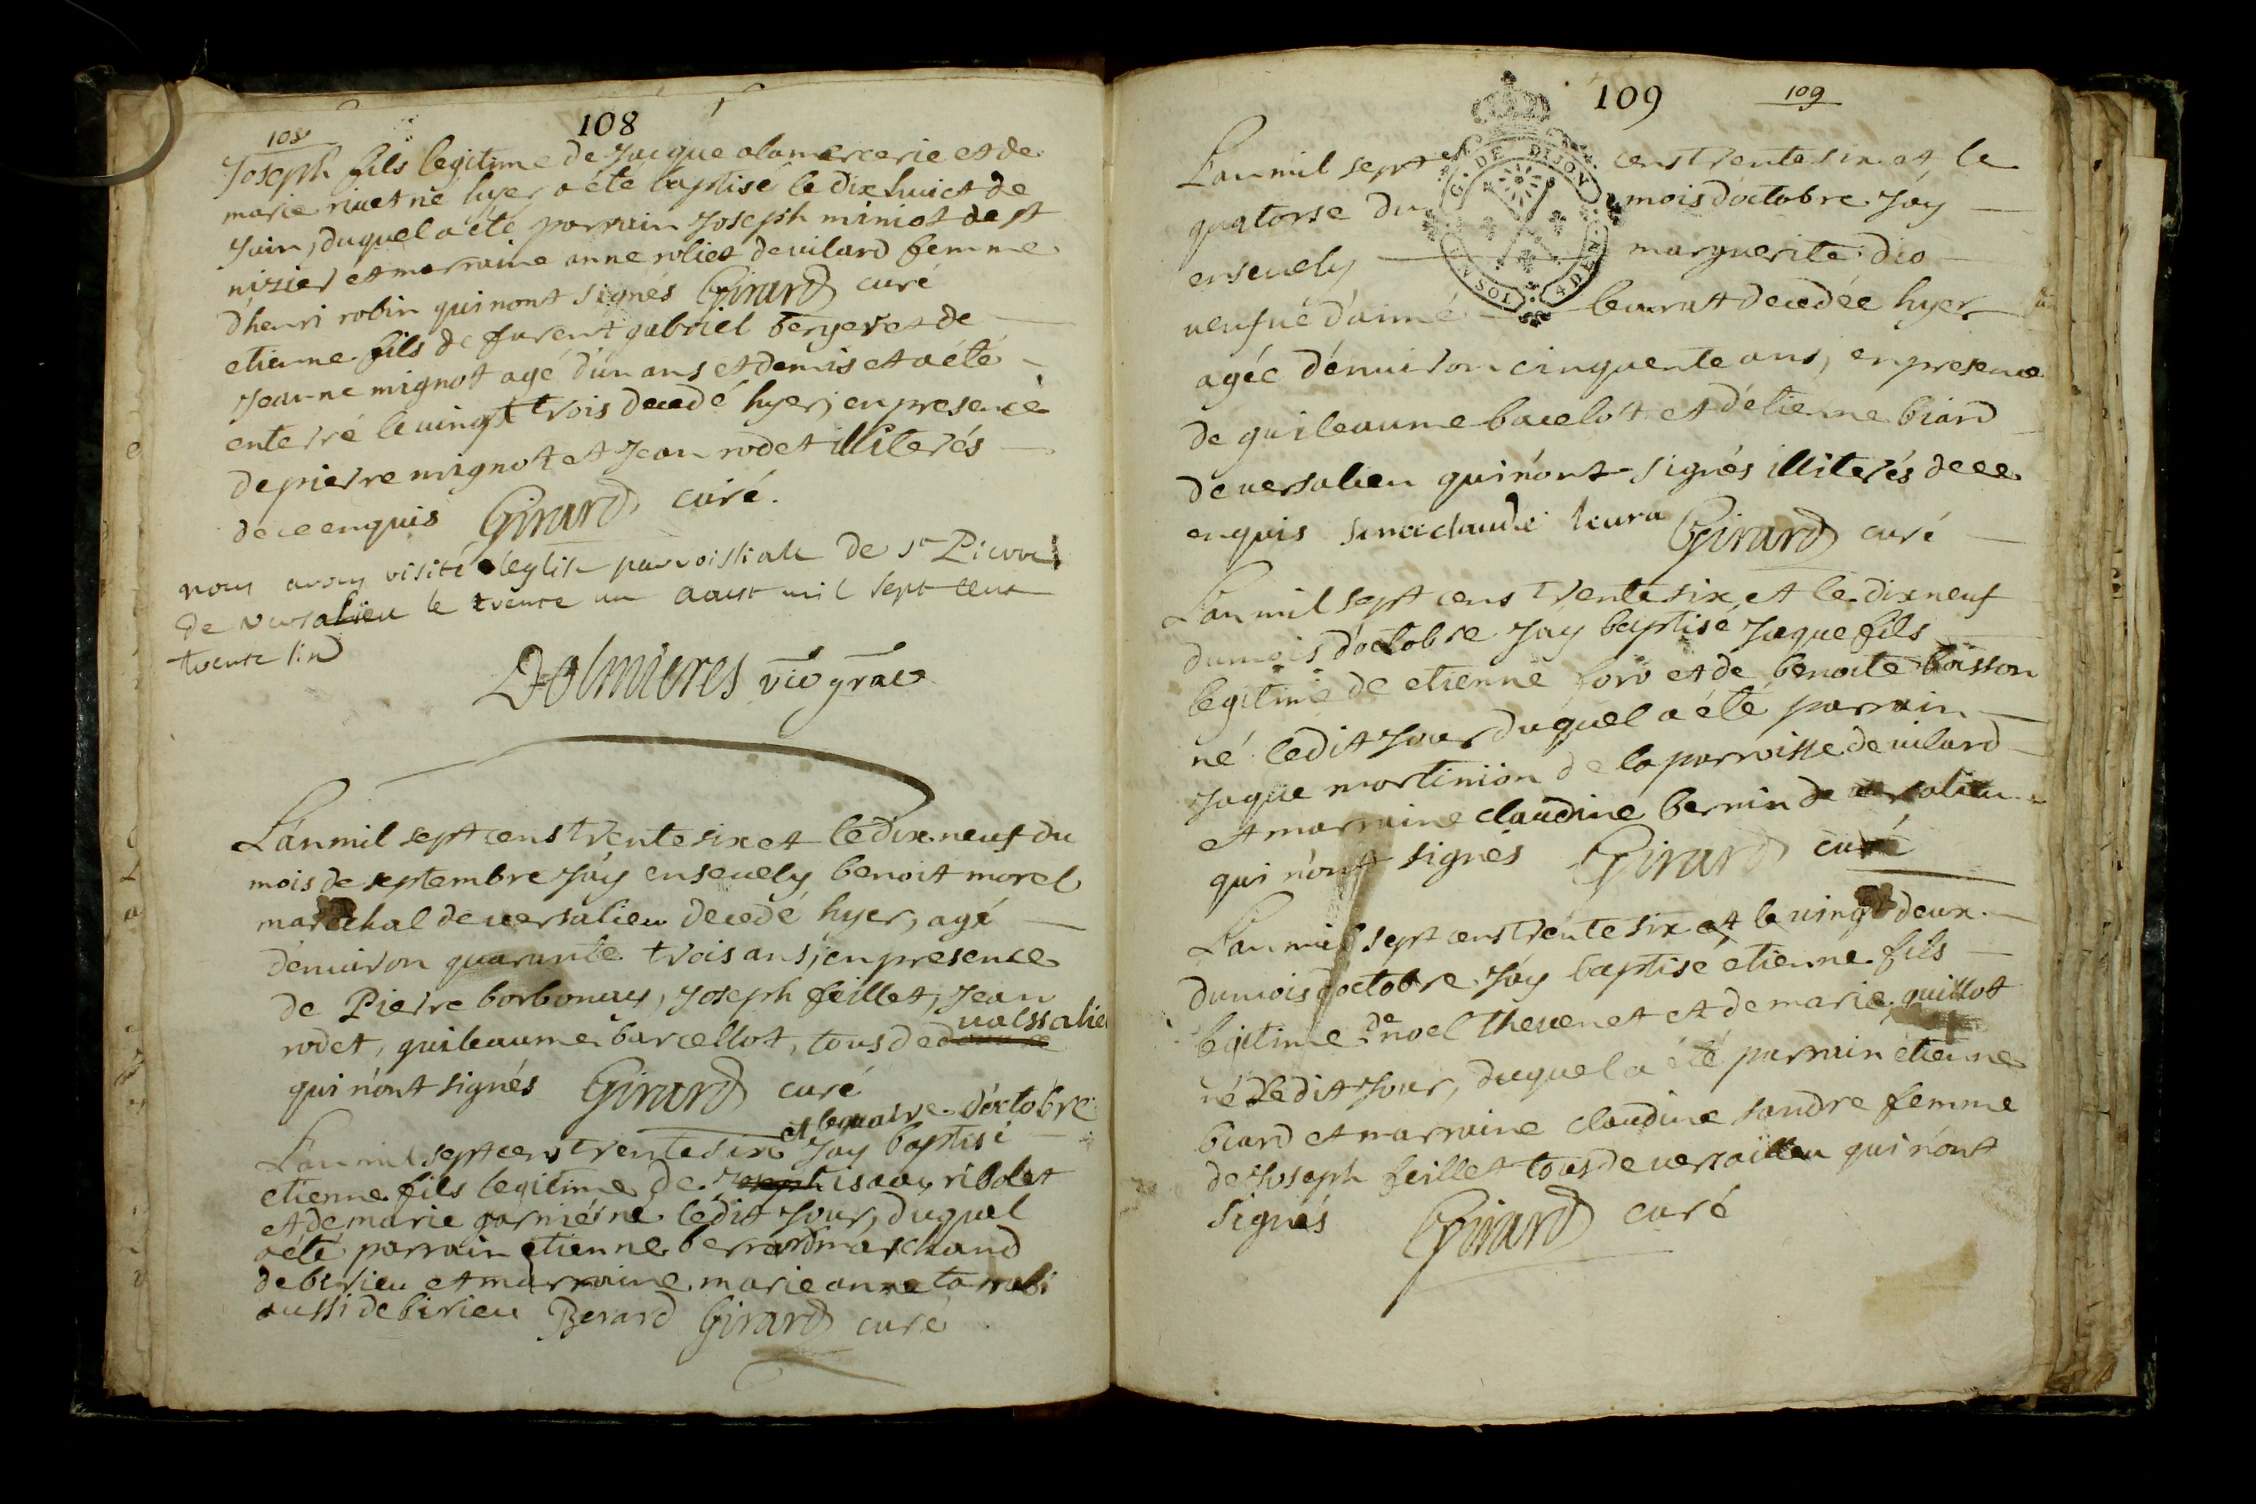 108
108
Joseph fils legitime de Jacque alamercerie et de
marie rivet né hyer a été baptisé le dix huict de
Juin, duquel a été parrain Joseph miniot de st
nizier et marraine anne roliet de vilard femme
d'henri robin qui n'ont signés Girard curé
etienne fils de furent gabriel berger et de
Jeanne mignot agé d'un ans et demis et a été
enterré le vingt trois decedé hyer, en presence
de pierre mignot et Jean rodet illiterés
de ce enquis Girard curé.
nous avons visité l'eglise parroissiale de st Pierre
de versalieu le trente un aoust mil sept cent
trente
Dolmieres vic gral
L'an mil sept cens trente six et le dix neuf du
mois de septembre J'ay ensevely benoit morel
marechal de versalieu decedé hyer, agé
d'environ quarante trois ans, en presence
de Pierre borbonay, Joseph feillet, Jean
rodet, guileaume barcellot, tous de versalieu
qui n'ont signés Girard curé
et le quatre d'octobre
L'an mil sept cens trente six J'ay baptisé
etienne fils legitime de Joseph isaac ribolet
et de marie garnié né ledit Jour, duquel
a été parrain etienne berrard marchand
de birieu et marraine marie anne
aussi de birieu Berard Girard curé
109
109
G. DE DIJON
4 DEN
L'an mil sept cens trente six et le
quatorse du mois d'octobre J'ay
ensevely marguerite dio
veufue d'aimé leurat decedée hyer
agée d'environ cinquente ans, en presence
de guileaume bacelot et d'etienne biard
de versalieu qui n'ont signés illiterés de ce
enquis claude leura Girard curé
L'an mil sept cens trente six et le dix neuf
du mois d'octobre J'ay baptisé Jaque fils
legitime de etienne foro et de benoite boisson
né ledit Jour duquel a été parrain
Jaque mortinion de la parroisse de vilard
et marraine claudine bernin de versalieu
qui n'ont signés Girard curé
L'an mil sept cens trente six et le vingt deux
du mois d'octobre J'ay baptise etienne fils
legitime de noel thevenet et de marie guillot
né ledit Jour, duquel a été parrain etienne
biard et marraine claudine sandre femme
de Joseph feillet tous de versailieu qui n'ont
signés Girard curé